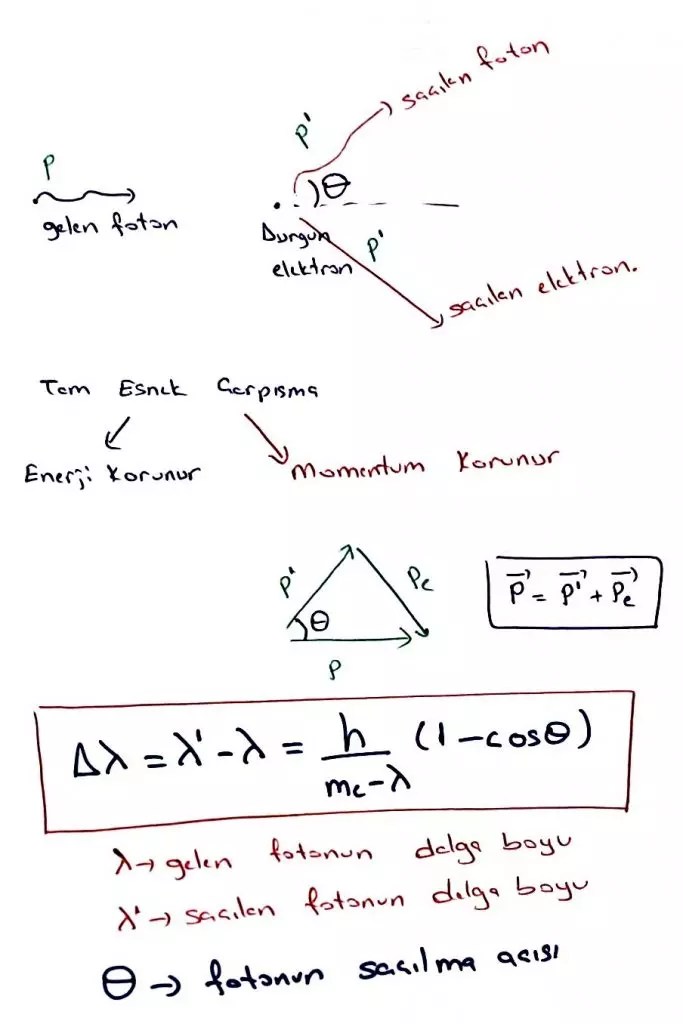 saçılan foton
p'
p
θ
gelen foton
Durgun
elektron
p'
saçılan elektron.
Tam Esnek Çarpışma
Enerji Korunur
Momentum Korunur
p'
Pe
θ
p
P = P' + Pe
Δλ = λ' - λ = h / mc-λ (1-cosθ)
λ → gelen fotonun dalga boyu
λ' → saçılan fotonun dalga boyu
θ → fotonun saçılma açısı